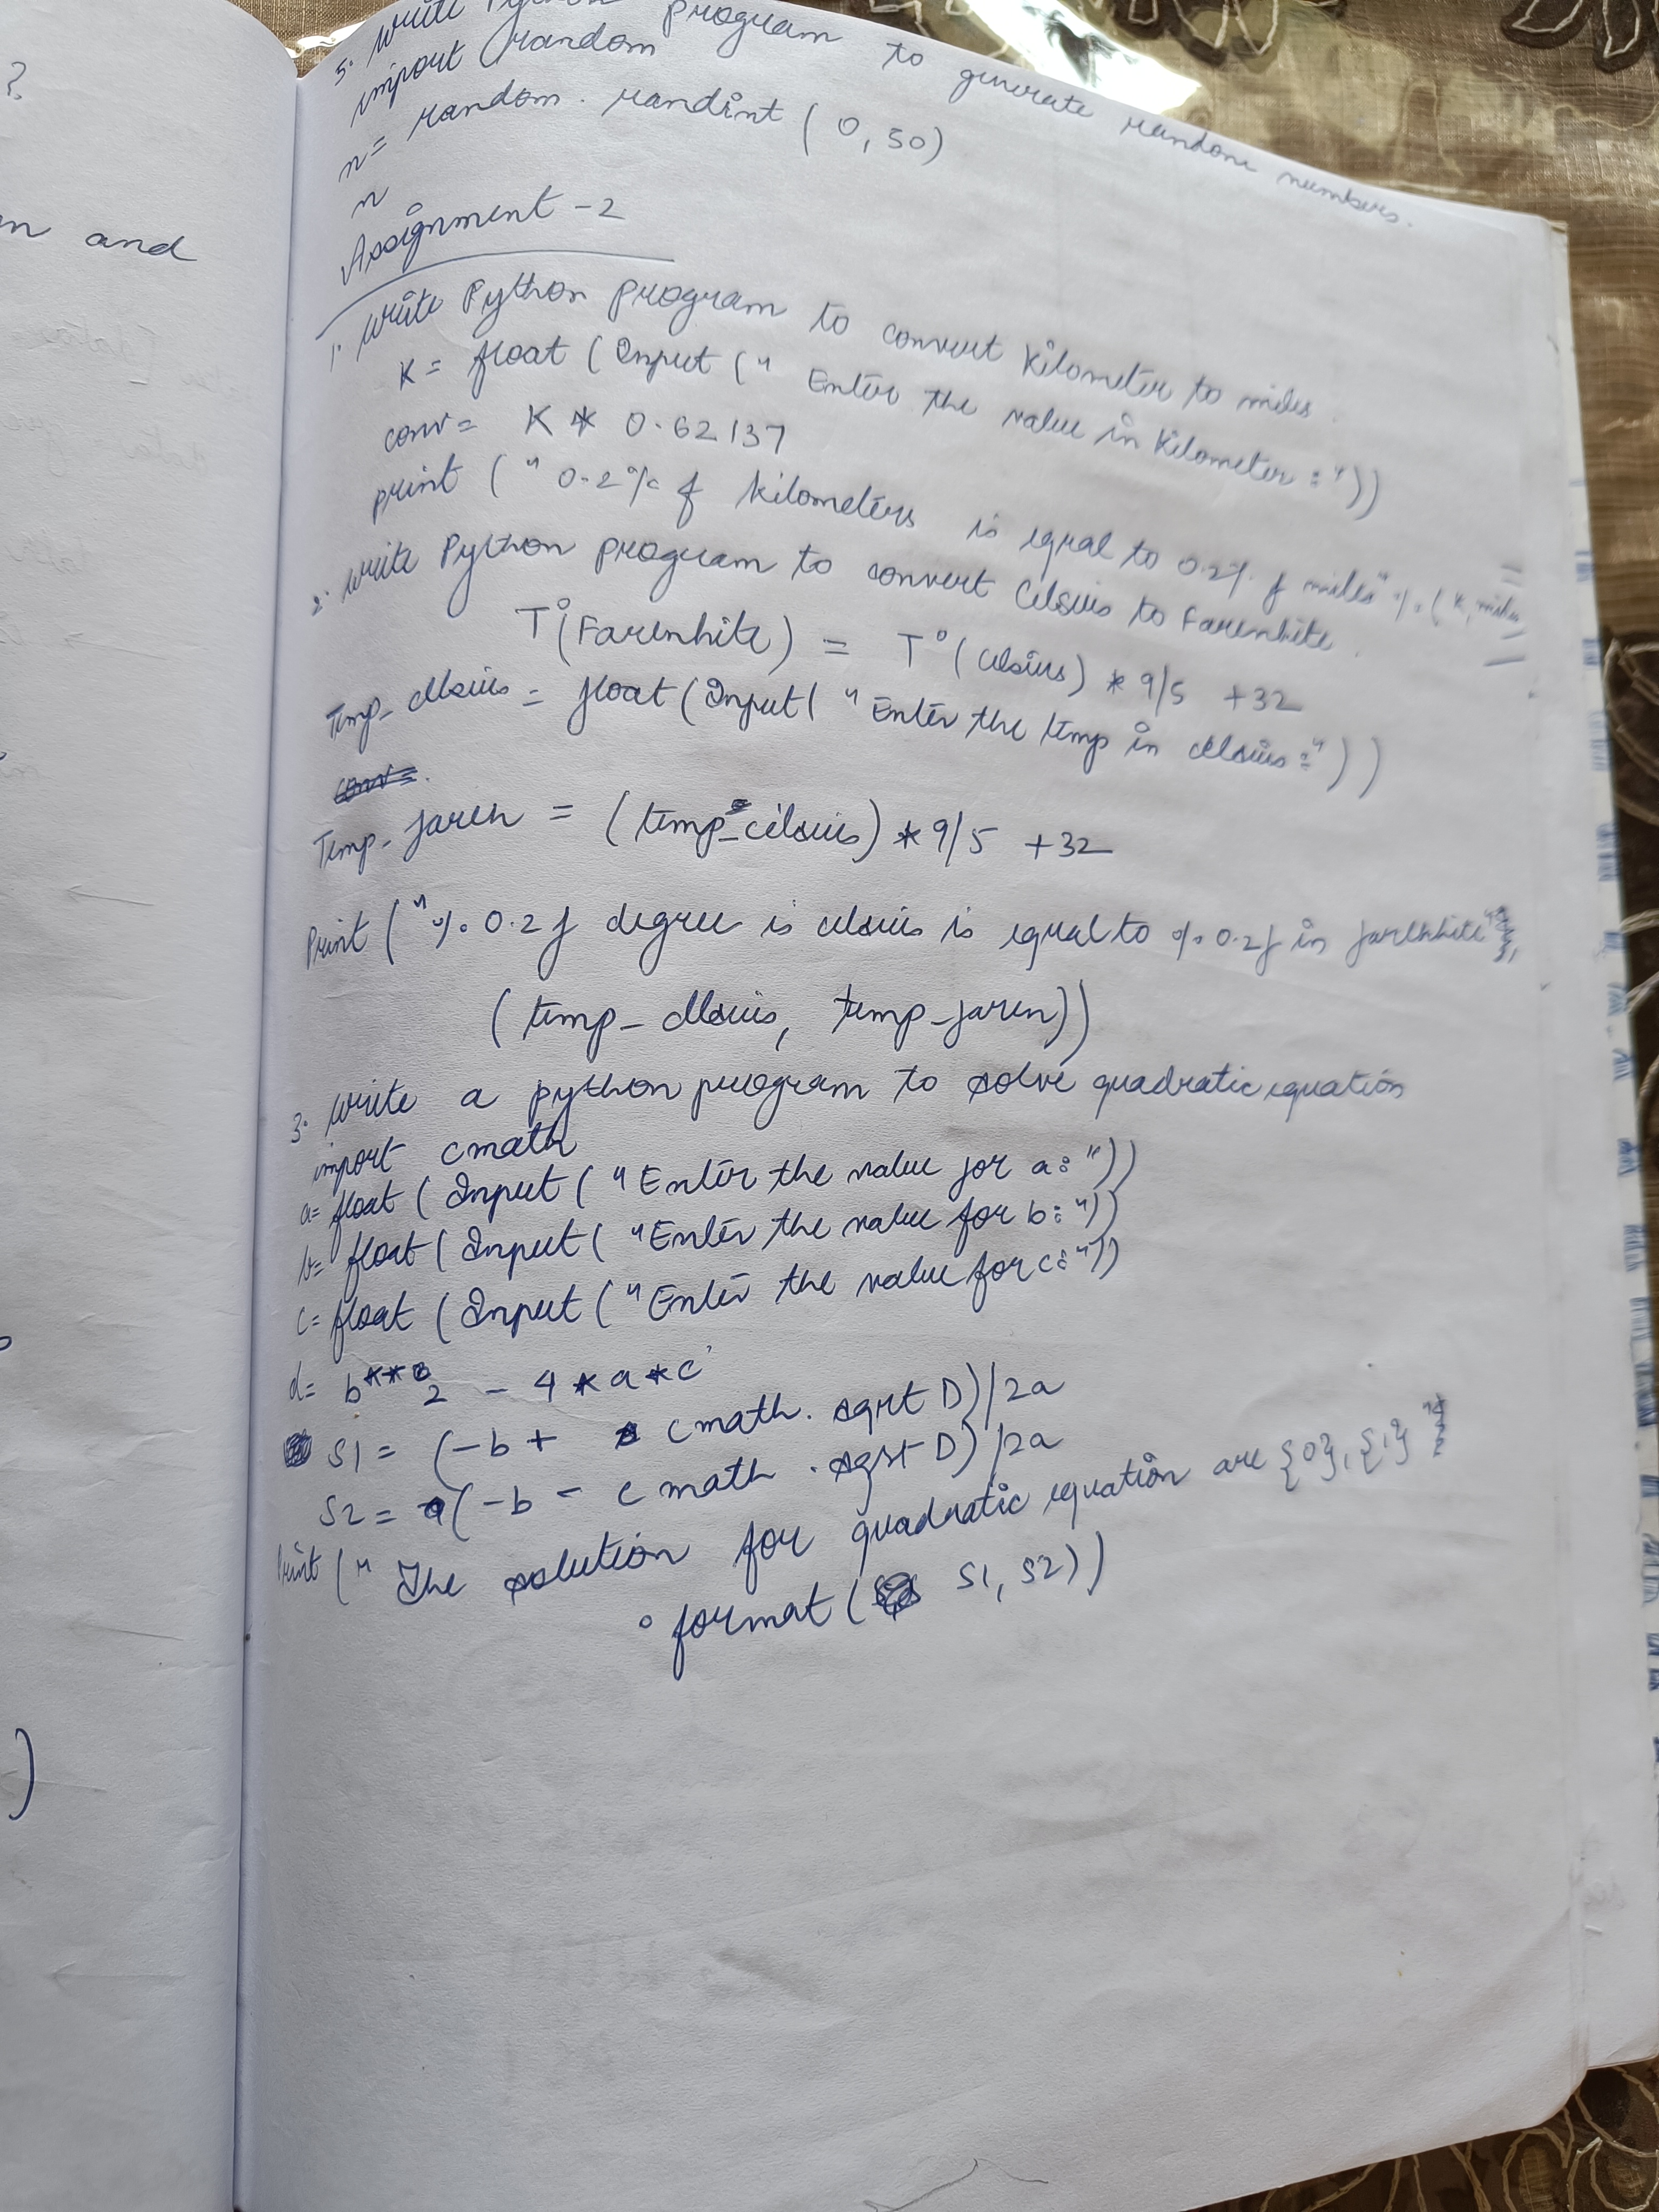 ?
n and
)
5. Write Python program to generate random numbers.
import random
n = random. randint (0, 50)
n
Assignment - 2
1. Write Python program to convert Kilometer to miles.
K = float (Input (" Enter the value in Kilometer : "))
conv = K * 0.62137
print (" 0.2% f kilometers is equal to 0.2% f miles" % (K, miles
2. Write Python program to convert Celsius to Farenhite.
T°(Farenhite) = T°(celsius) * 9/5 +32
Temp_celsius = float (Input( "Enter the temp in celsius : "))
conv =
Temp_faren = (temp_celsius) * 9/5 +32
Print ("% 0.2f degree is celsius is equal to % 0.2f in farenhite"
(temp_celsius, temp_faren))
3. Write a python program to solve quadratic equation
import cmath
a= float (Input ( "Enter the value for a: "))
b= float (Input ( "Enter the value for b: "))
c= float (Input ( "Enter the value for c: "))
d= b**2 - 4 * a * c
S1 = (-b + cmath. sqrt D)/2a
S2 = (-b - cmath .sqrt D)/2a
Print (" The solution for quadratic equation are {0}, {1} "
. format ( S1, S2))